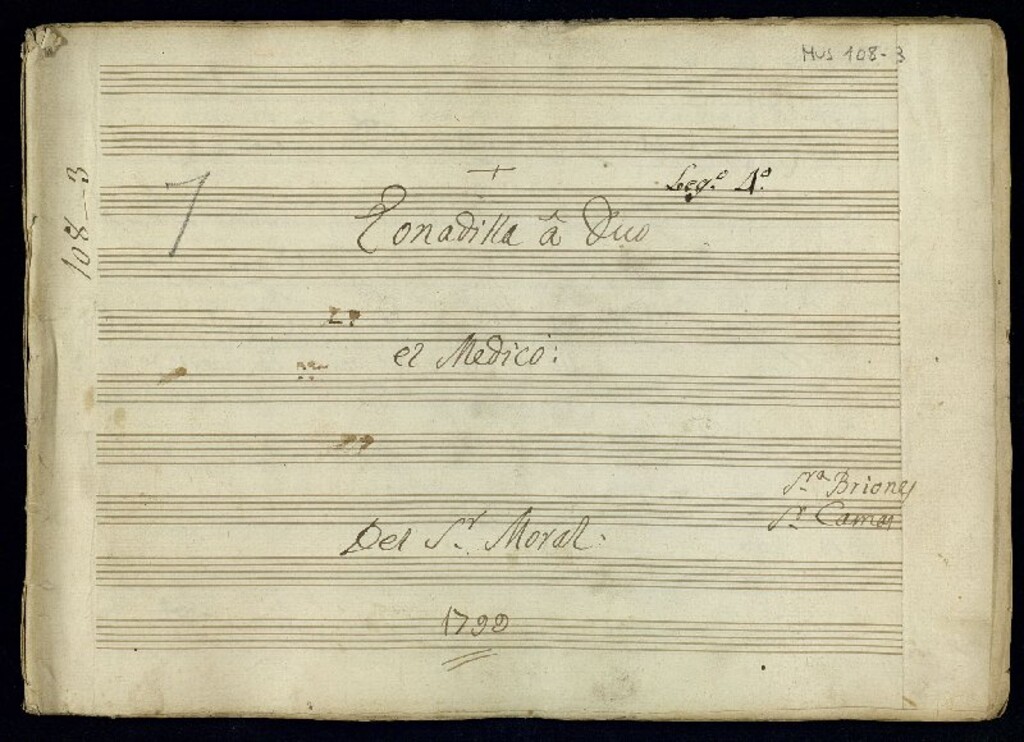 Mus 108-3
108-3
7
Leg.º 4.º
Tonadilla â Duo
el Medico:
S.ra Briones
S.r Camas
Del S.r Moral.